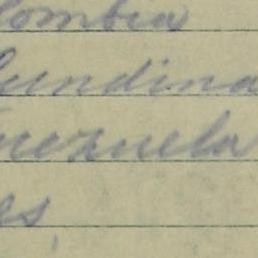 lombia
undina
nezuela
es,